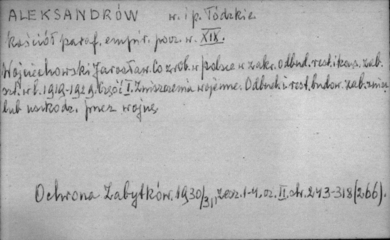 ALEKSANDRÓW w. i p. Łódzkie.
kościół paraf. empir. pocz. w. XIX.
Wojciechowski Jarosław. Co zrob. w Polsce w zakr. odbud. rest. i kons. zab.
szt. w l. 1919-1929. Część I. Zniszczenia wojenne. Odbud. i rest. budow. zab. zniszcz.
lub uszkodz. przez wojnę.
Ochrona Zabytków. 1930/31, zesz. 1-4. cz. II. str. 243-318 (266).